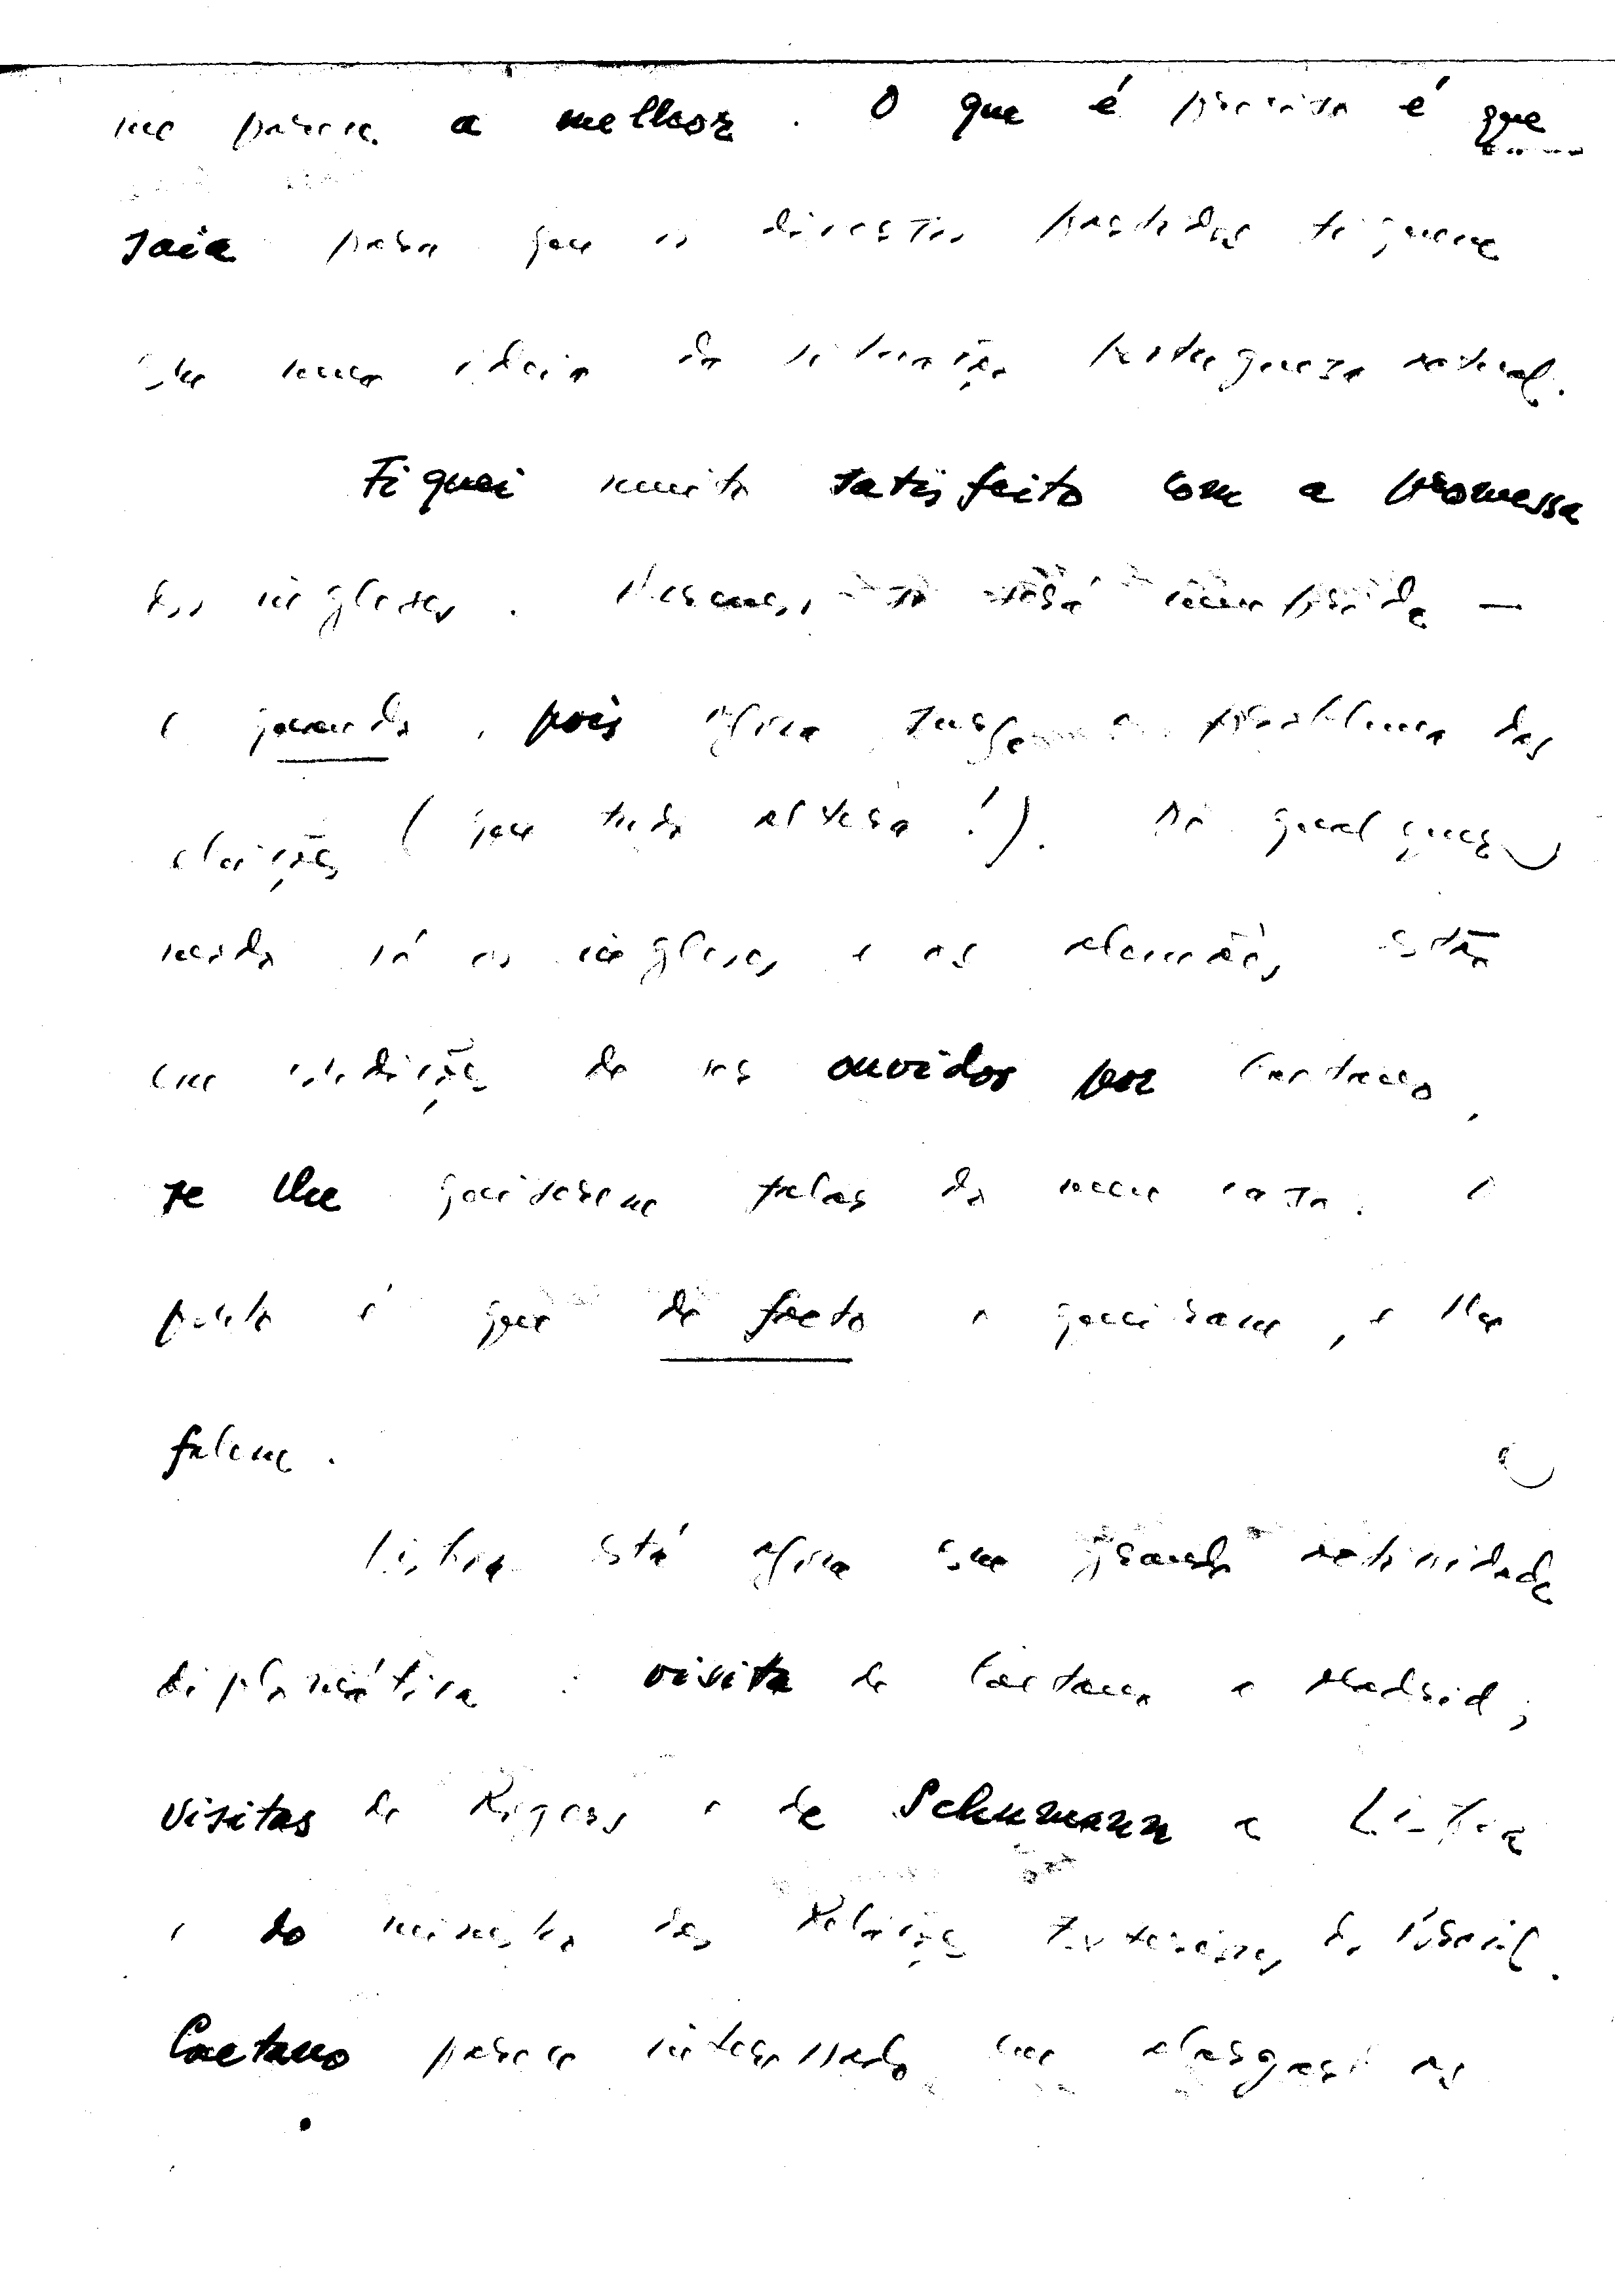 me parece a melhor. O que é preciso é que
saia para que os directos partidos fiquem
com uma ideia da situação portuguesa actual.
Fiquei muito satisfeito com a promessa
dos ingleses. Mesmo, será cumprida —
e quando, pois agora surge o problema das
eleições (que tudo altera!). De qualquer
modo só os ingleses e os alemães estão
em condições de ser ouvidos por Caetano,
se lhe quiserem falar do meu caso. O
ponto é que de facto o queiram, e lhe
falem.
Lisboa está agora em grande actividade
diplomática: visita de Caetano a Madrid;
visitas de Rogers e de Schumann a Lisboa
e do ministro das Relações Exteriores do Brasil.
Caetano parece interessado em alargar as